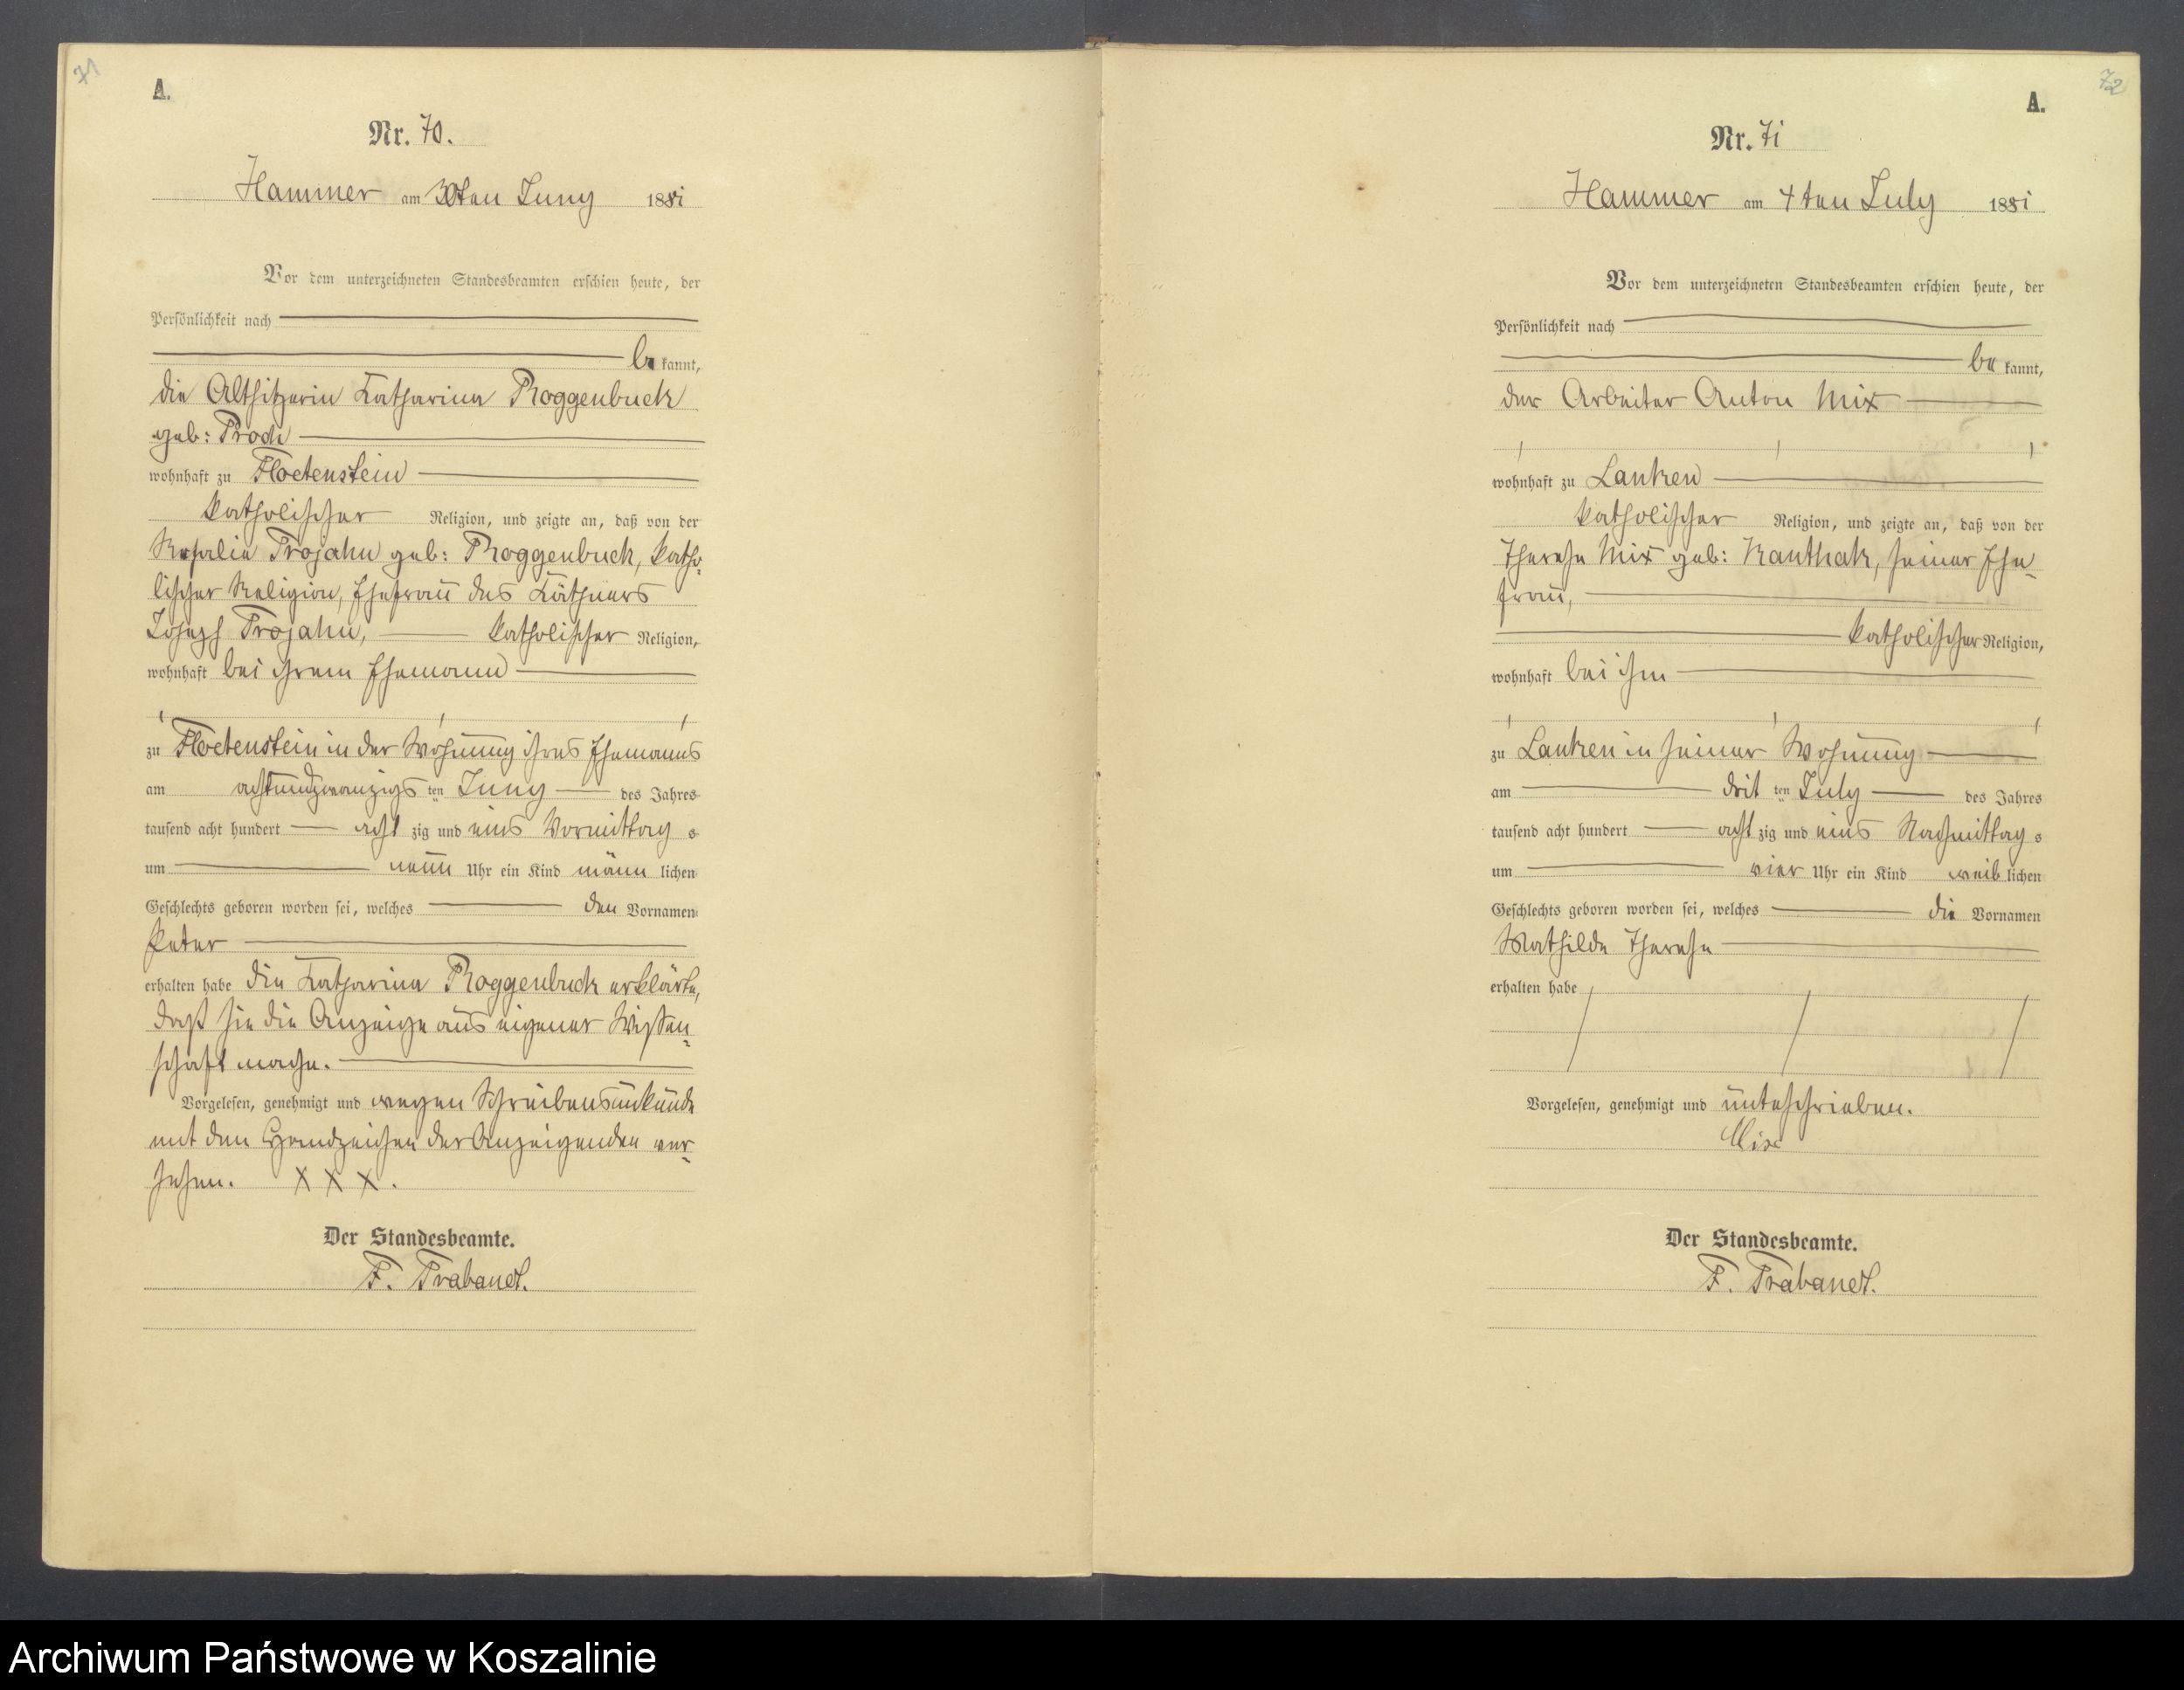 71
A.
Nr. 70.
Hammer am 30ten Juny 1881
Vor dem unterzeichneten Standesbeamten erschien heute, der
Persönlichkeit nach
be kannt,
die Altsitzerin Katharina Roggenbuck
geb: Proch
wohnhaft zu Floetenstein
katholischer Religion, und zeigte an, daß von der
Rosalie Trojahn geb: Roggenbuck, katho-
lischer Religion, Ehefrau des Käthners
Joseph Trojahn, katholischer Religion,
wohnhaft bei ihrem Ehemann
zu Floetenstein in der Wohnung ihres Ehemanns
am achtundzwanzigs ten Juny des Jahres
tausend acht hundert acht zig und eins Vormittag s
um neun Uhr ein Kind männ lichen
Geschlechts geboren worden sei, welches den Vornamen
Peter
erhalten habe die Katharina Roggenbuck erklärte,
daß sie die Anzeige aus eigener Wissen-
schaft mache.
Vorgelesen, genehmigt und wegen Schreibensunkunde
mit den Handzeichen der Anzeigenden ver-
sehen. X X X.
Der Standesbeamte.
F. Trabandt.
72
A.
Nr. 71
Hammer am 4ten July 1881
Vor dem unterzeichneten Standesbeamten erschien heute, der
Persönlichkeit nach
be kannt,
der Arbeiter Anton Mix
wohnhaft zu Lanken
katholischer Religion, und zeigte an, daß von der
Therese Mix geb: Kanthak, seiner Ehe-
frau,
katholischer Religion,
wohnhaft bei ihm
zu Lanken in seiner Wohnung
am drit ten July des Jahres
tausend acht hundert acht zig und eins Nachmittag s
um vier Uhr ein Kind weib lichen
Geschlechts geboren worden sei, welches die Vornamen
Mathilde Therese
erhalten habe
Vorgelesen, genehmigt und unteschrieben.
Mix
Der Standesbeamte.
F. Trabandt.
Archiwum Państwowe w Koszalinie